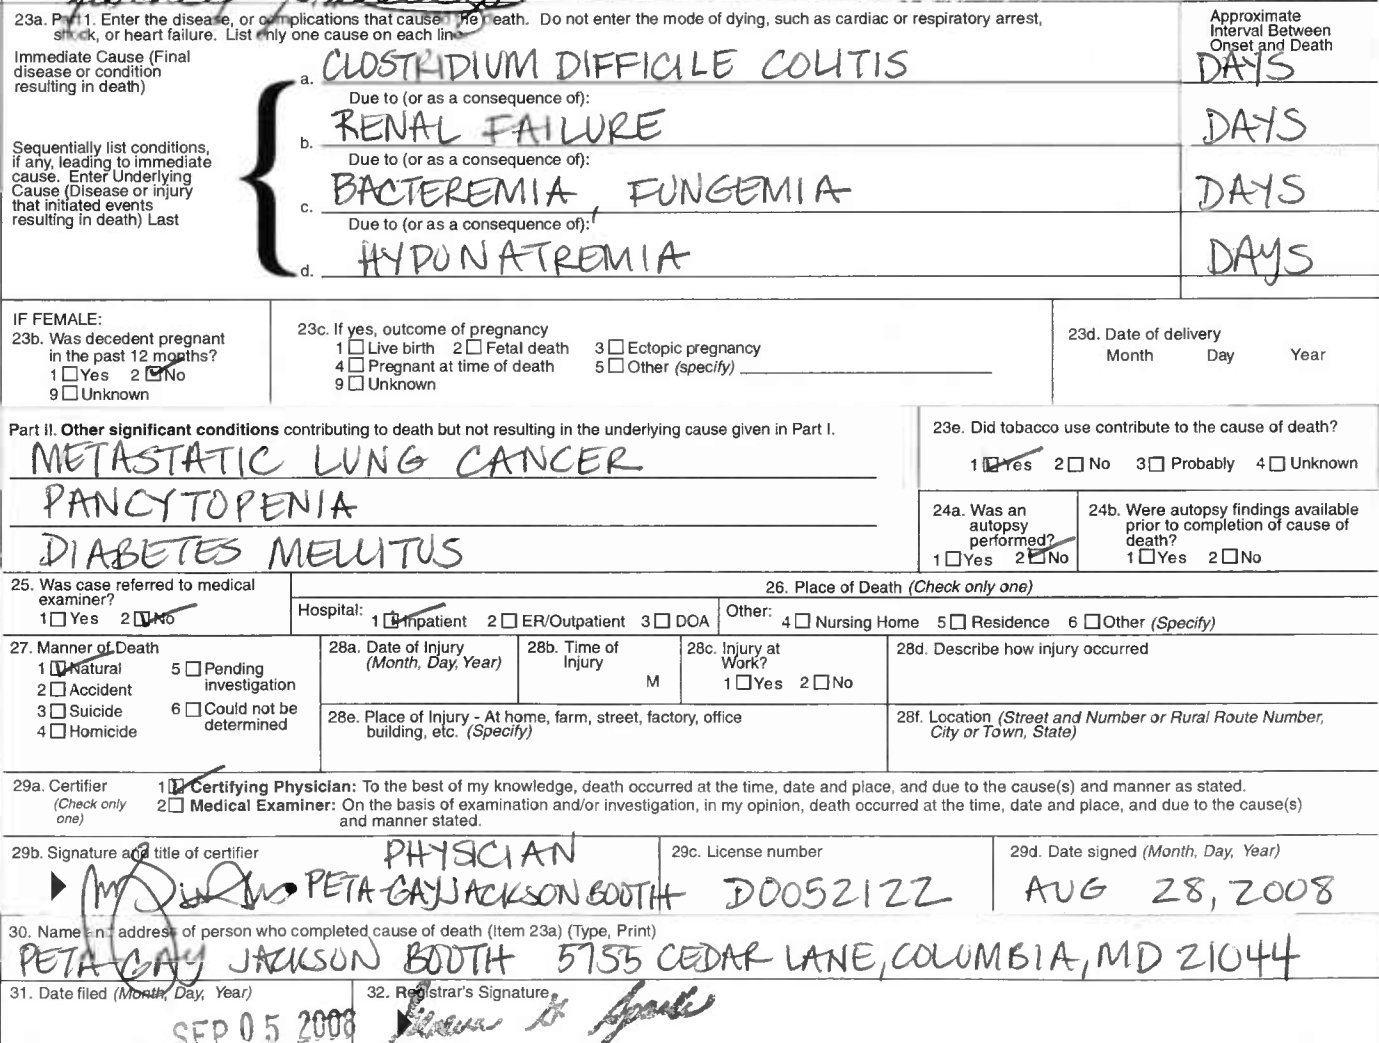 23a. Part 1. Enter the disease, or complications that caused the death. Do not enter the mode of dying, such as cardiac or respiratory arrest,
shock, or heart failure. List only one cause on each line.
Approximate
Interval Between
Onset and Death
Immediate Cause (Final
disease or condition
resulting in death)
a. CLOSTRIDIUM DIFFICILE COLITIS DAYS
Due to (or as a consequence of):
b. RENAL FAILURE DAYS
Sequentially list conditions,
if any, leading to immediate
cause. Enter Underlying
Cause (Disease or injury
that initiated events
resulting in death) Last
Due to (or as a consequence of):
c. BACTEREMIA, FUNGEMIA DAYS
Due to (or as a consequence of):
d. HYPONATREMIA DAYS
IF FEMALE:
23b. Was decedent pregnant
in the past 12 months?
1 Yes 2 No
9 Unknown
23c. If yes, outcome of pregnancy
1 Live birth 2 Fetal death 3 Ectopic pregnancy
4 Pregnant at time of death 5 Other (specify)
9 Unknown
23d. Date of delivery
Month Day Year
Part II. Other significant conditions contributing to death but not resulting in the underlying cause given in Part I.
METASTATIC LUNG CANCER
PANCYTOPENIA
DIABETES MELLITUS
23e. Did tobacco use contribute to the cause of death?
1 Yes 2 No 3 Probably 4 Unknown
24a. Was an
autopsy
performed?
1 Yes 2 No
24b. Were autopsy findings available
prior to completion of cause of
death?
1 Yes 2 No
25. Was case referred to medical
examiner?
1 Yes 2 No
26. Place of Death (Check only one)
Hospital: 1 Inpatient 2 ER/Outpatient 3 DOA Other: 4 Nursing Home 5 Residence 6 Other (Specify)
27. Manner of Death
1 Natural 5 Pending
investigation
2 Accident
3 Suicide 6 Could not be
determined
4 Homicide
28a. Date of Injury
(Month, Day, Year)
28b. Time of
Injury
M
28c. Injury at
Work?
1 Yes 2 No
28d. Describe how injury occurred
28e. Place of Injury - At home, farm, street, factory, office
building, etc. (Specify)
28f. Location (Street and Number or Rural Route Number,
City or Town, State)
29a. Certifier
(Check only
one)
1 Certifying Physician: To the best of my knowledge, death occurred at the time, date and place, and due to the cause(s) and manner as stated.
2 Medical Examiner: On the basis of examination and/or investigation, in my opinion, death occurred at the time, date and place, and due to the cause(s)
and manner stated.
29b. Signature and title of certifier
PHYSICIAN
PETA-GAY JACKSON BOOTH
29c. License number
D0052122
29d. Date signed (Month, Day, Year)
AUG 28, 2008
30. Name and address of person who completed cause of death (Item 23a) (Type, Print)
PETA-GAY JACKSON BOOTH 5755 CEDAR LANE, COLUMBIA, MD 21044
31. Date filed (Month, Day, Year)
SEP 05 2008
32. Registrar's Signature